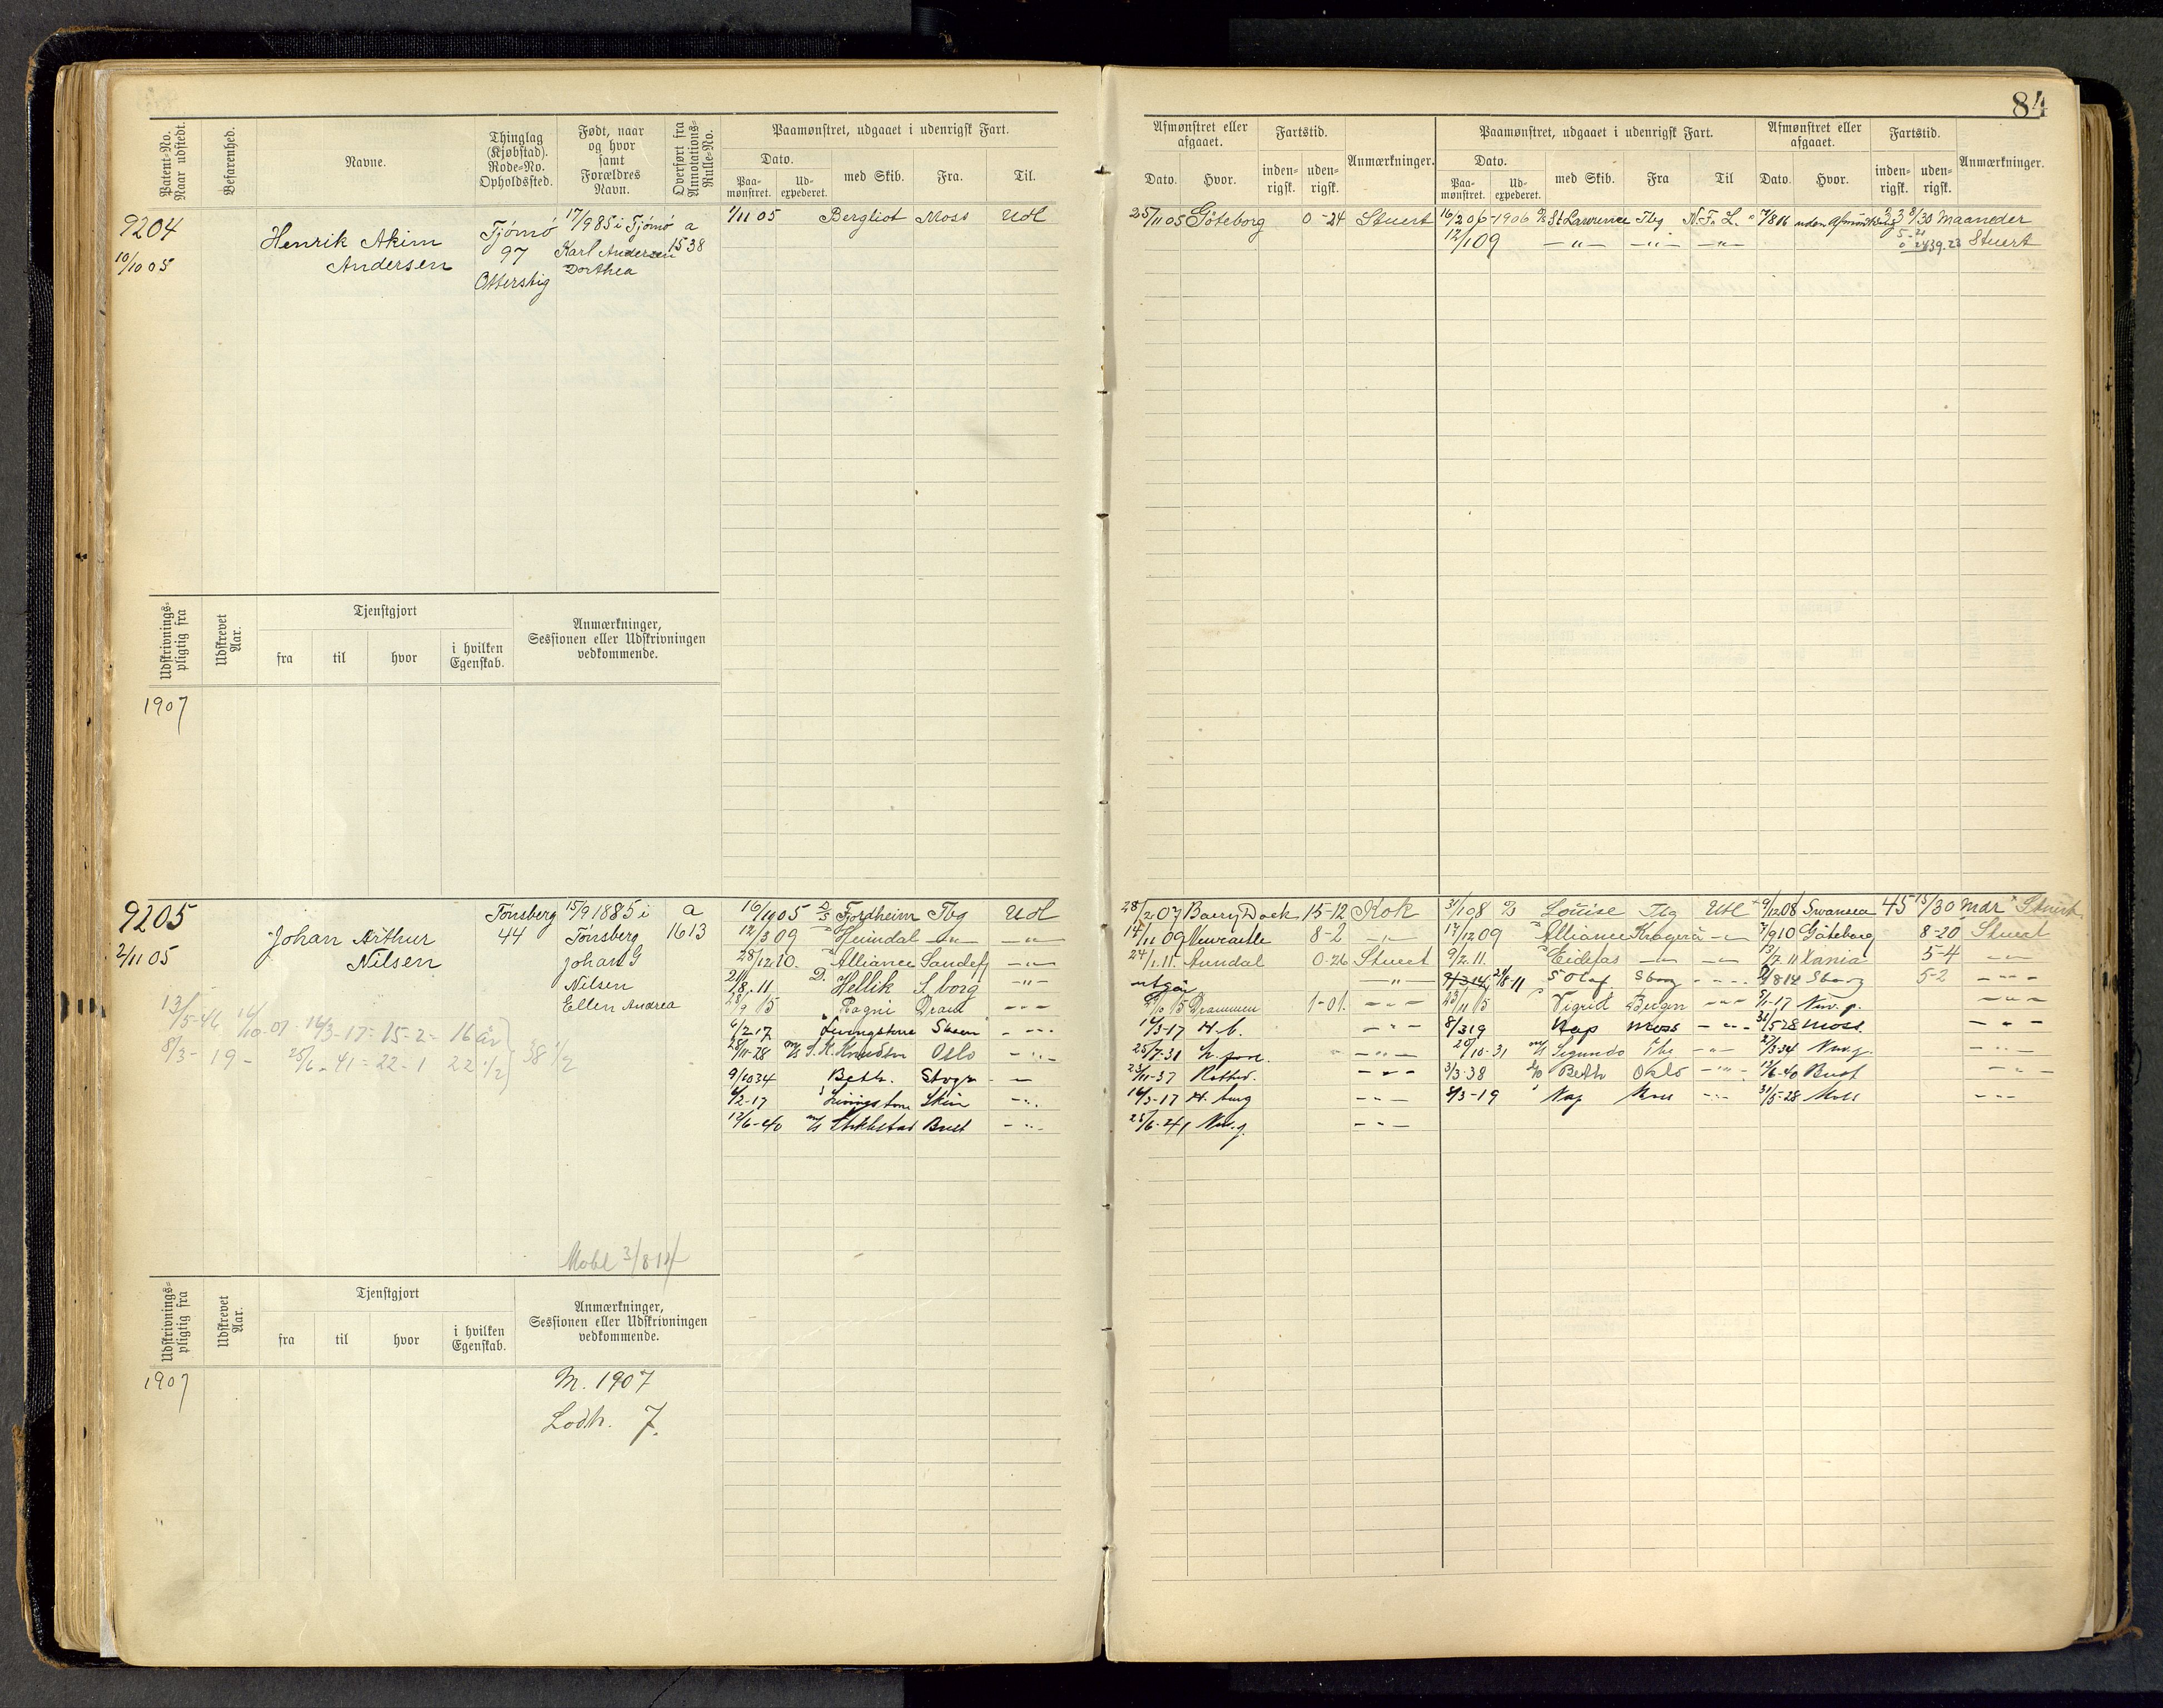 84
Patent-No. Naar udstedt.
Befarenhed.
Navne.
Thinglag (Kjøbstad). Rode-No. Opholdssted.
Født, naar og hvor samt Forældres Navn.
Overført fra Annotations-Rulle-No.
Paamønstret, udgaaet i udenrigsk Fart.
Dato.
Paamønstret.
Udexpederet.
med Skib.
Fra.
Til.
Afmønstret eller afgaaet.
Dato.
Hvor.
Fartstid.
indenrigsk.
udenrigsk.
Anmærkninger.
Paamønstret, udgaaet i udenrigsk Fart.
Dato.
Paamønstret.
Udexpederet.
med Skib.
Fra
Til
Afmønstret eller afgaaet.
Dato.
Hvor.
Fartstid.
indenrigsk.
udenrigsk.
Anmærkninger.
9204
10/10 05
Henrik Akim
Andersen
Tjömö
97
17/9 85 i Tjömö
Karl Andersen
Dorthea
a
1538
1/11 05 Bergliot Moss Udl
25/11 05 Göteborg 0-24 Stuert
16/2 06 -1906 St Lawrence Tbg N. F. L. 7/8 06 uden Afmönstring 3 3 8/30 Maaneder
12/1 09 -"- -"- -"- 39.23 Stuert
Udskrivningspligtig fra
Udskrevet Aar.
Tjenstgjort
fra
til
hvor
i hvilken Egenskab.
Anmærkninger, Sessionen eller Udskrivningen vedkommende.
1907
9205
2/11 05
Johan Arthur
Nilsen
Tönsberg
44
15/9 1885 i
Tönsberg
Johan G
Nilsen
Ellen Andrea
a
1613
13/5-46 16/10-01 - 16/3-17 = 15-2 = 16 år
8/3-19 - 25/6-41 = 22-1 22 1/2
38 1/2
16/11 05 Fjordheim Tbg Udl
12/3 09 Heimdal -"- -"-
28/12 10. Alliance Sandefj -"-
21/8.11 D. Hellik S.borg -"-
28/9 15 Ragni Dram -"-
6/2-17 Livingstone Skien -"-
28/11-28 m/s I. K. Knudsen Oslo -"-
9/10 34 Beth.
6/2-17 Livingstone Skien -"-
12/6-40 m/s Stiklestad Brest -"-
28/2 07 Barry Dock 15-12 Kok
14/11 09 Newcastle 8-2 -"-
24/1.11. Arendal 0-26 Stuert
utgår -"-
15 Drammen 1-01. -"-
16/3-17 H.b. -"-
25/7-31 -"-
23/11-37 Rotterd. -"-
16/3-17 H.burg -"-
25/6-41 Nw.y. -"-
31/1 08 Louise Tbg Udl 9/12 08 Swansea 45 15/30 Mdr Stuert
17/12 09 Alliance Kragerö -"- 7/9 10 Göteborg 8-20 Stuert
9/2.11. Eidefos -"- -"- 13/7.11 Xania 5-4 -"-
24/8 11 S Olaf Sborg -"- 8 14 Sborg 5-2 -"-
23/11 15 Sigrid Bergen -"- 9/1-17 Nw.y. -"-
8/3 19 Nap Moss -"- 31/5 28 Moss. -"-
20/10-31 m/s Segundo Tbg -"- 27/3-34 Nw.y. -"-
3/3-38 Beth Oslo -"- 12/6-40 Brest -"-
8/3-19 Nap Moss -"- 31/5-28 Moss -"-
Mobl 3/8 14
Udskrivningspligtig fra
Udskrevet Aar.
Tjenstgjort
fra
til
hvor
i hvilken Egenskab.
Anmærkninger, Sessionen eller Udskrivningen vedkommende.
1907
M. 1907
Lodtr. 7.